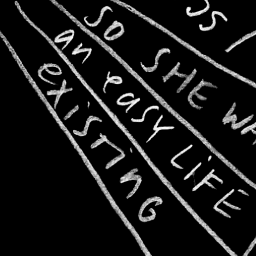 SO SHE
an easy LiFE
existing